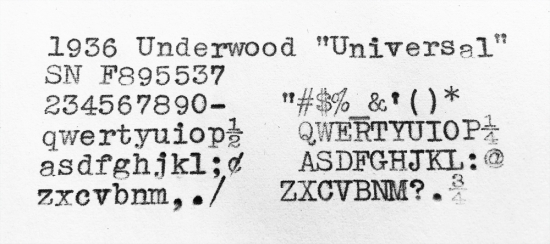 1936 Underwood "Universal"
SN F895537
234567890- "#$%_&'()*
qwertyuiop½ QWERTYUIOP¼
asdfghjkl;¢ ASDFGHJKL:@
zxcvbnm,./ ZXCVBNM?.¾